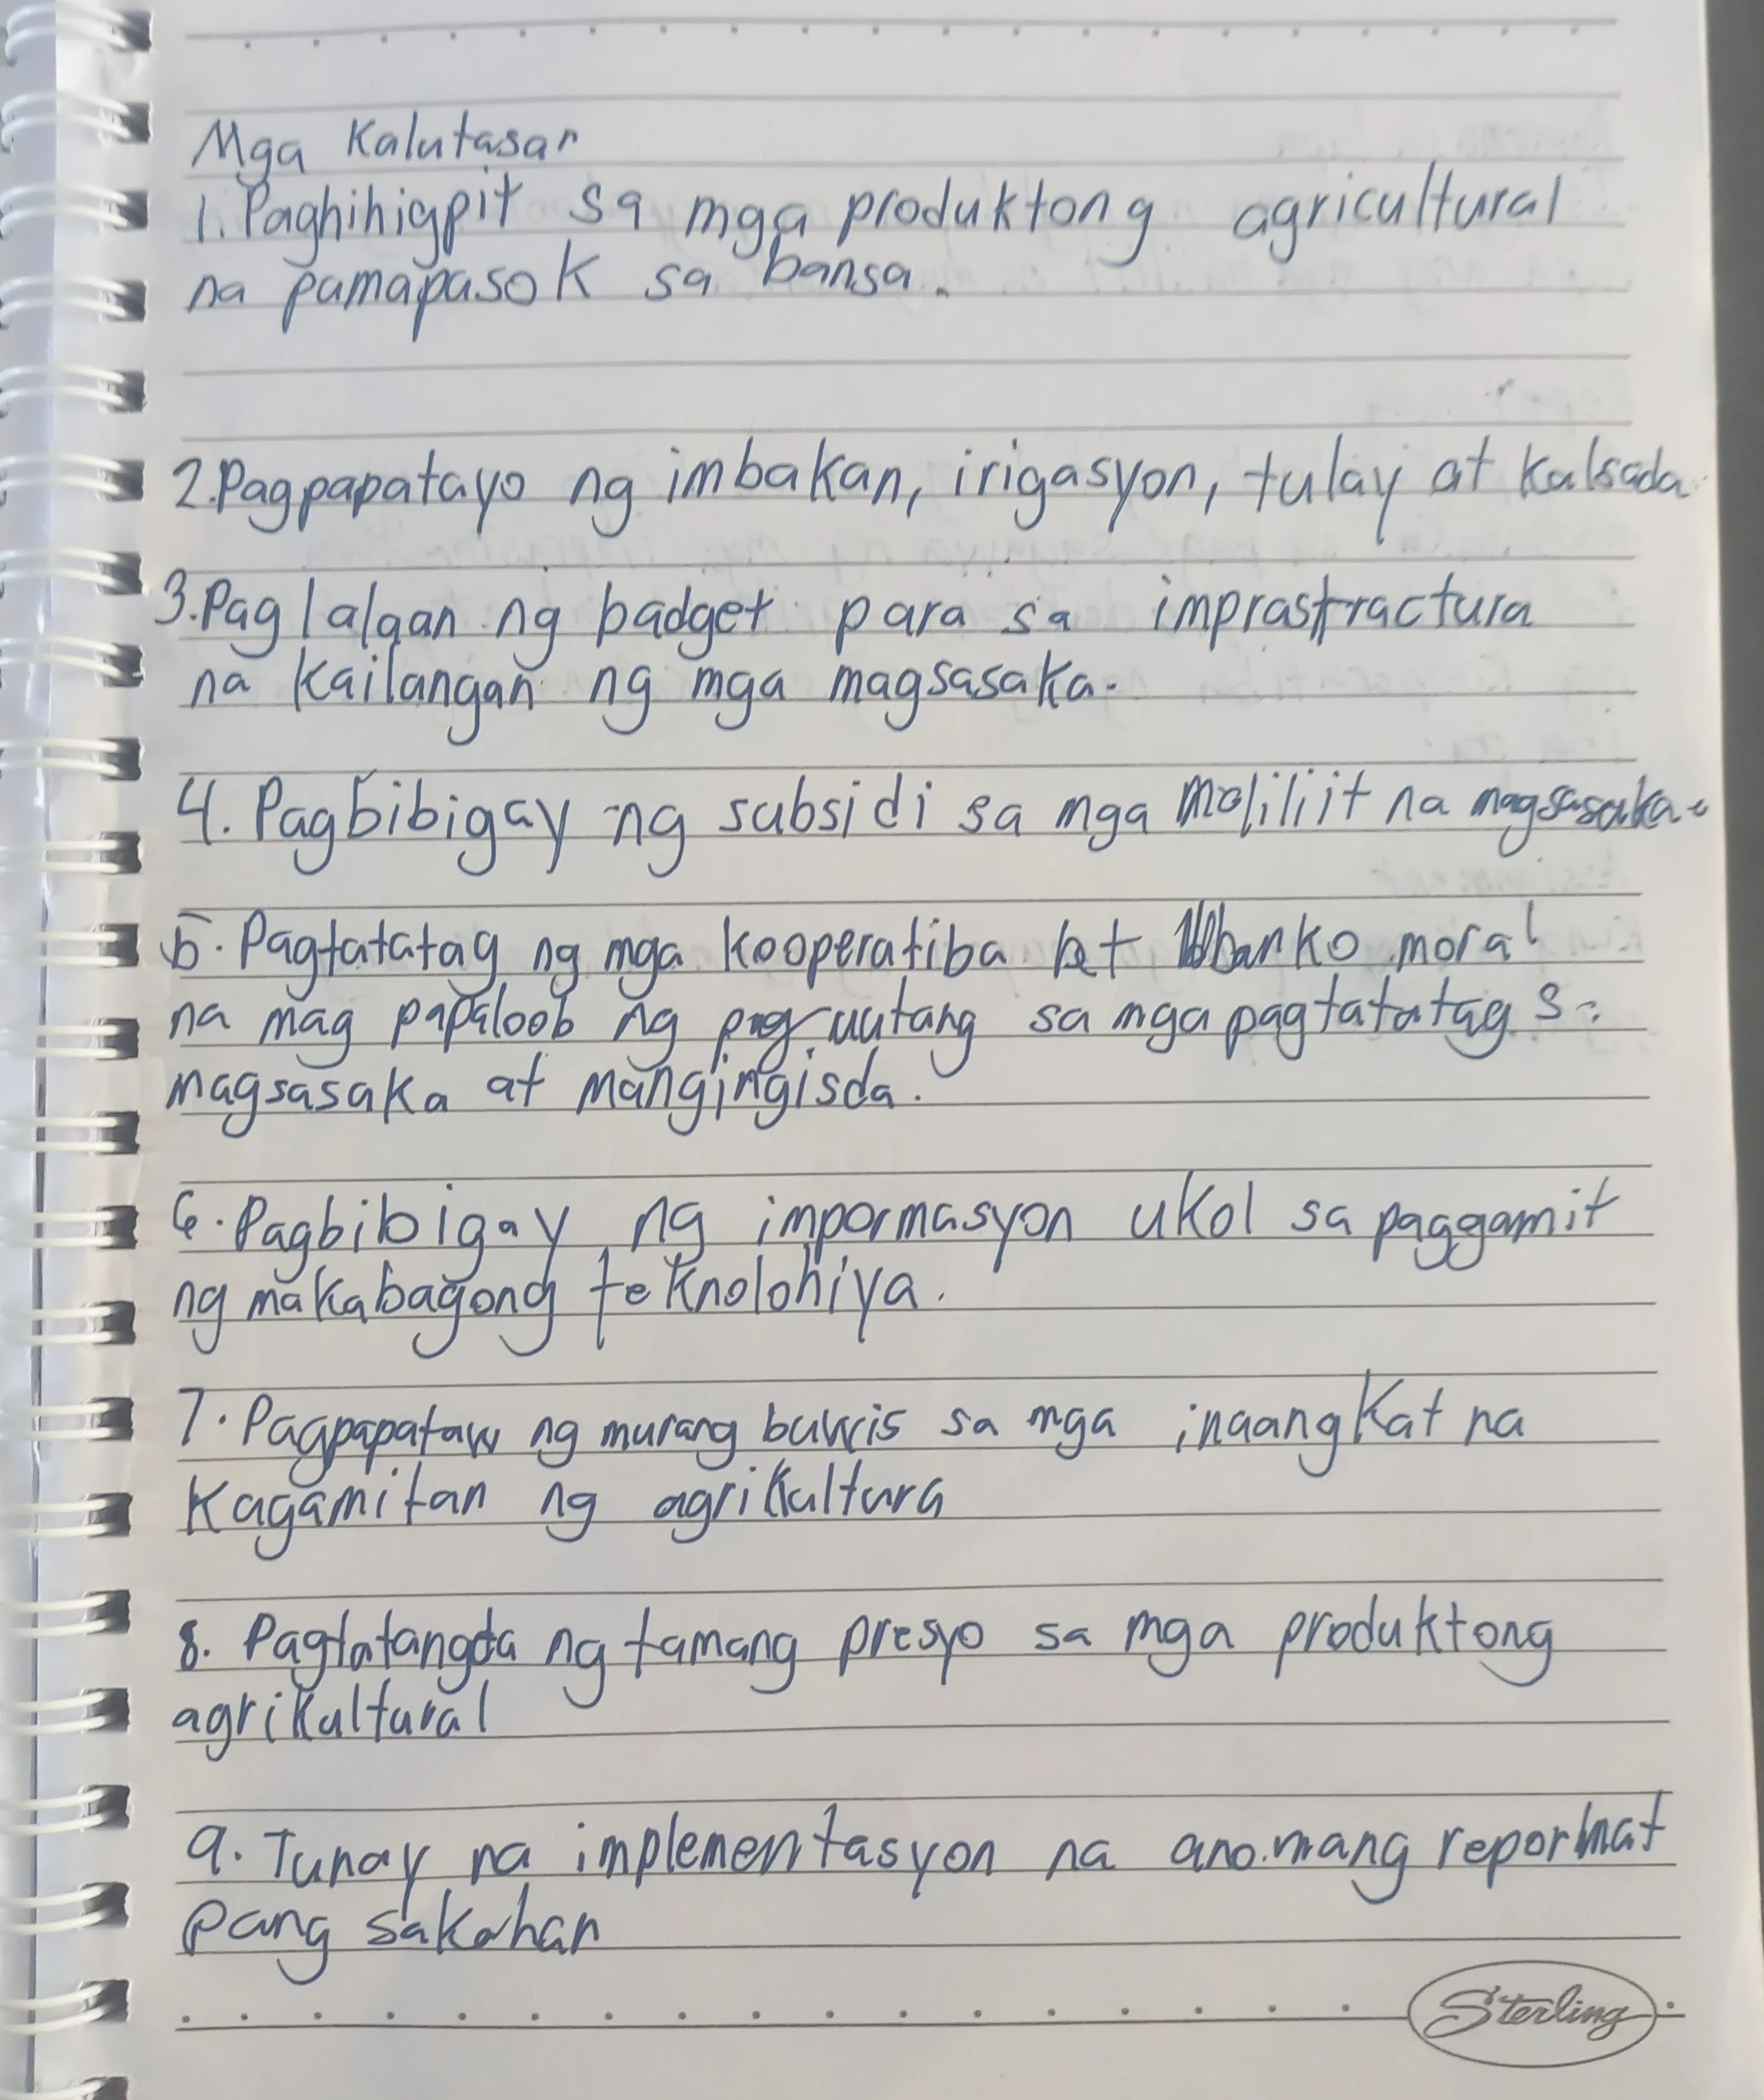 Mga Kalutasan
1. Paghihigpit sa mga produktong agricultural
na pamapasok sa bansa.
2. Pagpapatayo ng imbakan, irigasyon, tulay at Kalsada
3. Paglalaan ng badget para sa imprastractura
na Kailangan ng mga magsasaka.
4. Pagbibigay ng subsidi sa mga maliliit na magsasaka.
5. Pagtatatag ng mga Kooperatiba at banko moral
na mag papaloob ng pag-uutang sa mga pagtatatag
magsasaka at mangingisda.
6. Pagbibigay ng impormasyon ukol sa paggamit
ng makabagong teknolohiya.
7. Pagpapataw ng murang buwis sa mga inaangkat na
Kagamitan ng agrikultura
8. Pagtatangda ng tamang presyo sa mga produktong
agrikultural
9. Tunay na implementasyon na anomang repormat
Pang sakahan
Sterling